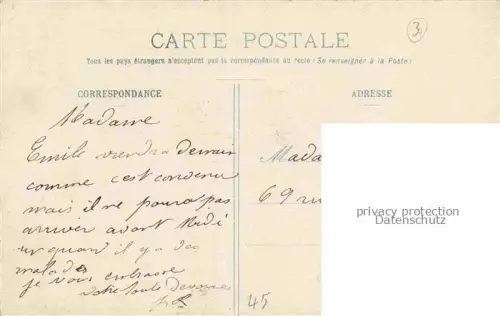 30
CARTE POSTALE
Tous les pays étrangers n'acceptent pas la correspondance au recto (Se renseigner à la Poste)
CORRESPONDANCE
ADRESSE
Madame
Emile viendra demain
comme c'est convenu
mais il ne poura pas
arriver avant Midi
quand il y a des
malades
je vous embrasse
votre toute
Mada
69 ru
privacy protection
Datenschutz
45